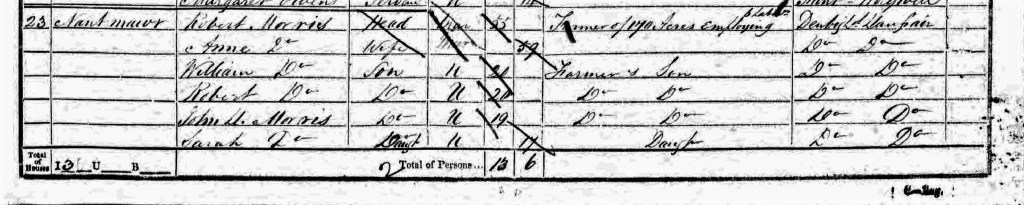 Margaret Owens Servant U
23 Nant mawr Robert Morris Head Mar 55 Farmer of 170 Acres Employing 2 Labrs Denbighs Llanfair
Anne Do Wife Mar 59 Do Do
William Do Son U 21 Farmer's Son Do Do
Robert Do Do U 20 Do Do Do Do
John Ll. Morris Do U 19 Do Do Do Do
Sarah Do Daugr U 17 Daugr Do Do
Total of Houses I 3 U B 2 Total of Persons... 13 6